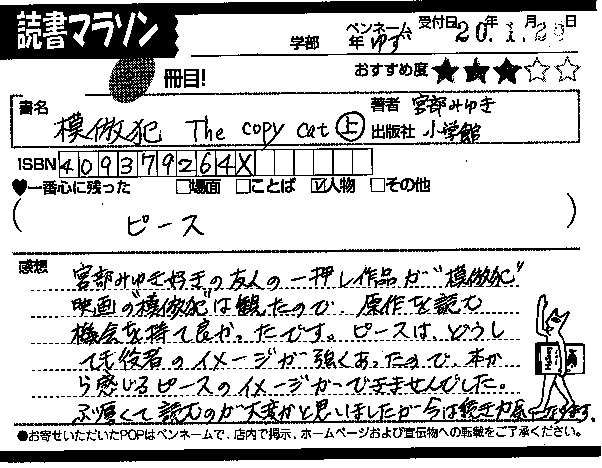 読書マラソン
学部 年 ペンネーム ゆず 受付日 20年1月29日
冊目! おすすめ度 ★★★☆☆
書名 模倣犯 The copy cat 上
著者 宮部みゆき
出版社 小学館
ISBN 409379264X
♥一番心に残った □場面 □ことば ☑人物 □その他
( ピース )
感想
宮部みゆき好きの友人の一押し作品が"模倣犯"
映画の"模倣犯"は観たので、原作を読む
機会を持て良かったです。ピースは、どうし
ても役者のイメージが強くあったので、本か
ら感じるピースのイメージができませんでした。
ぶ厚くて読むのが大変かと思いましたが今は続きが気になります。
●お寄せいただいたPOPはペンネームで、店内で掲示、ホームページおよび宣伝物への転載をご了承ください。